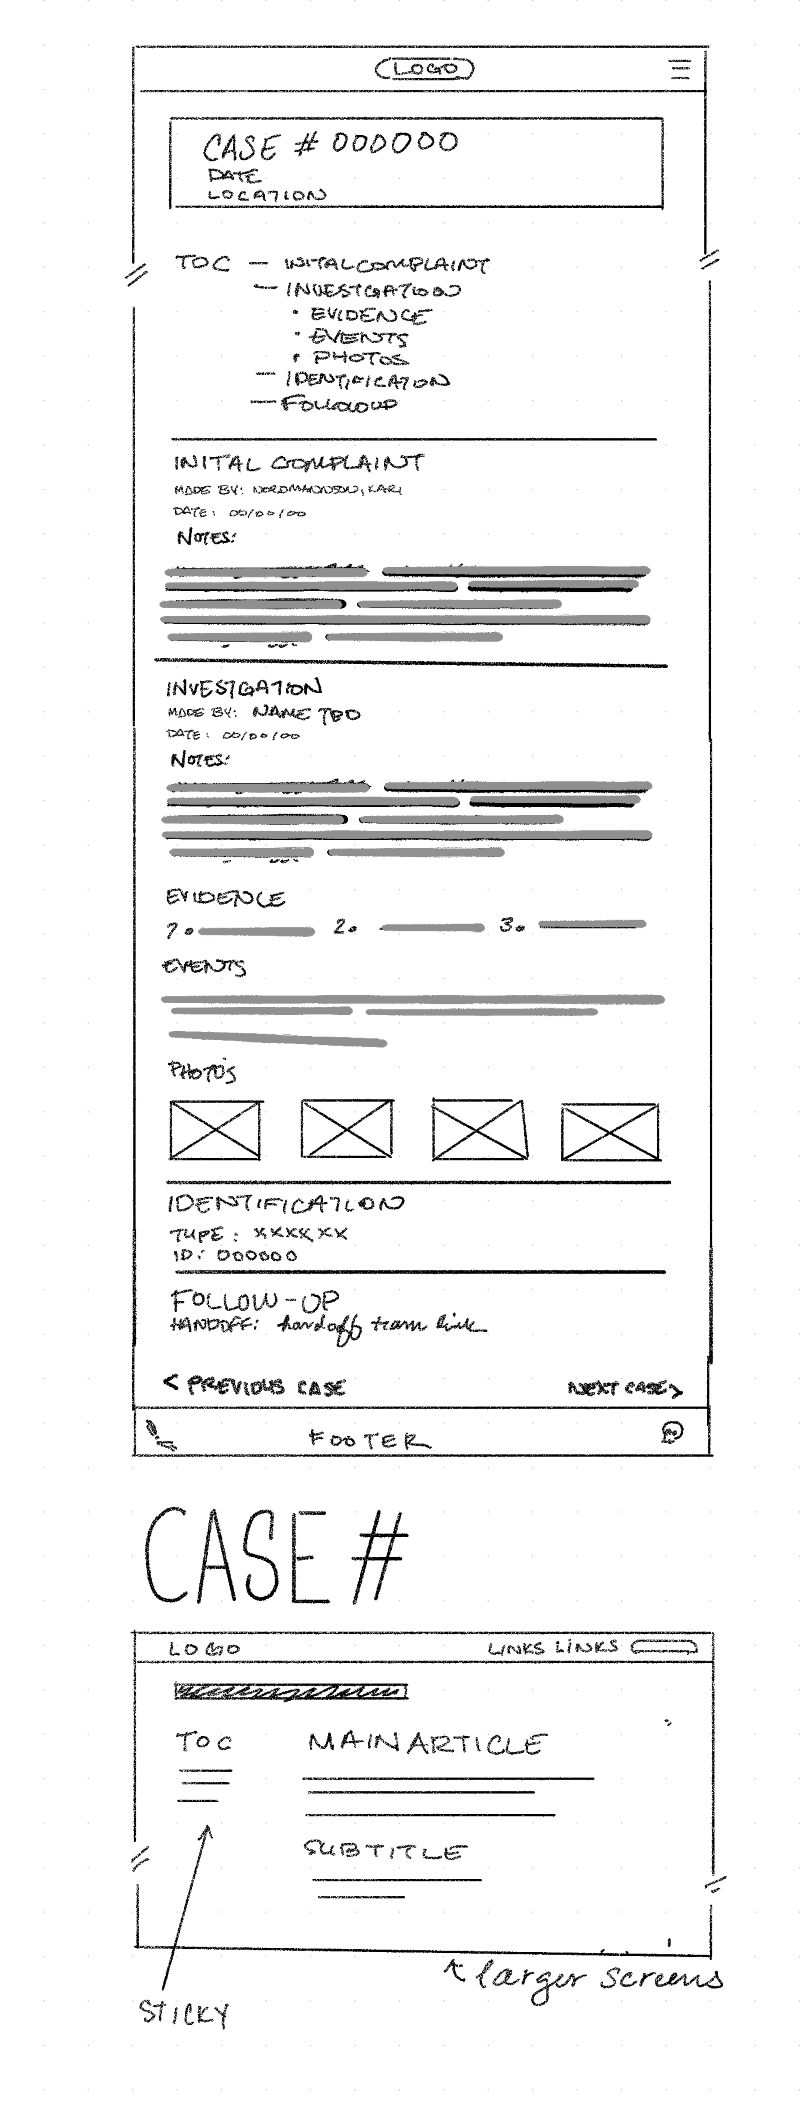 LOGO
CASE # 000000
DATE
LOCATION
TOC — INITALCOMPLAINT
— INVESTGATION
• EVIDENCE
• EVENTS
• PHOTOS
— IDENTIFICATION
— FOLLOWUP
INITAL COMPLAINT
MADE BY: NORDMANNSON, KARI
DATE: 00/00/00
NOTES:
INVESTGATION
MADE BY: NAME TBD
DATE: 00/00/00
NOTES:
EVIDENCE
1. 2. 3.
EVENTS
PHOTOS
IDENTIFICATION
TYPE: XXXXXX
ID: 000000
FOLLOW-UP
HANDOFF: handoff team link
< PREVIOUS CASE NEXT CASE >
FOOTER
CASE #
LOGO LINKS LINKS
TOC MAIN ARTICLE
SUBTITLE
larger screens
STICKY